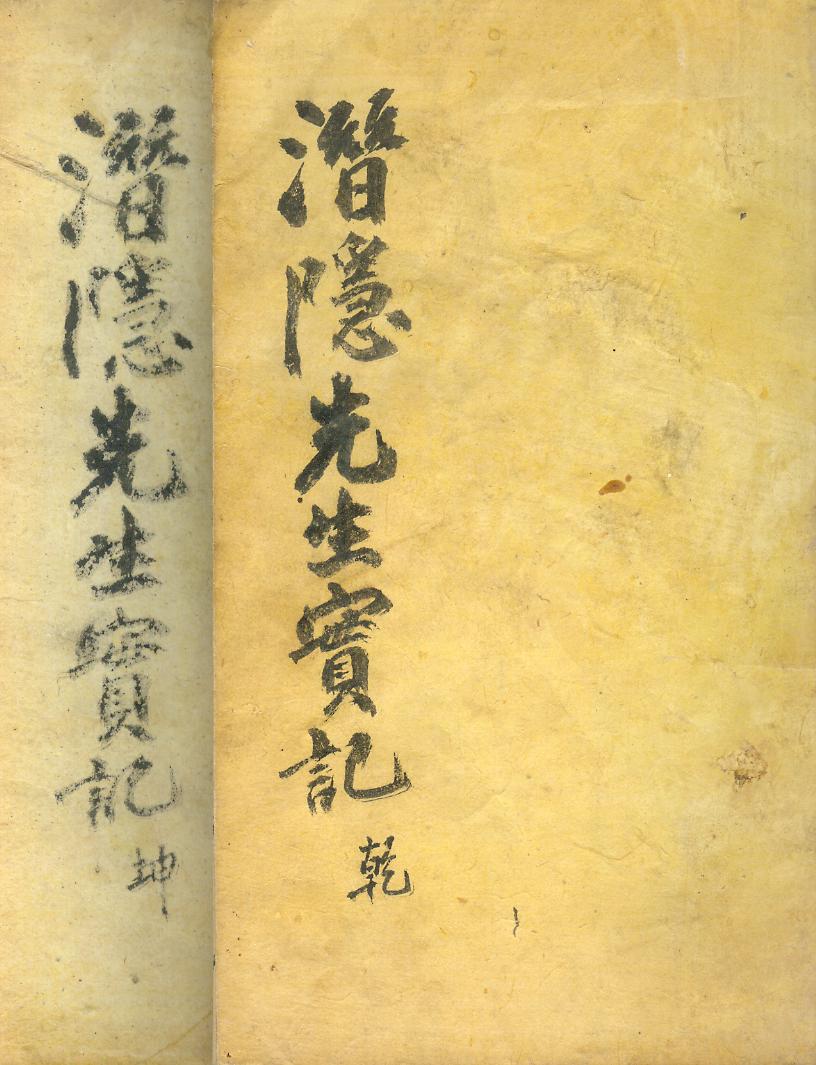 潛隱先生實記
乾
潛隱先生實記
坤